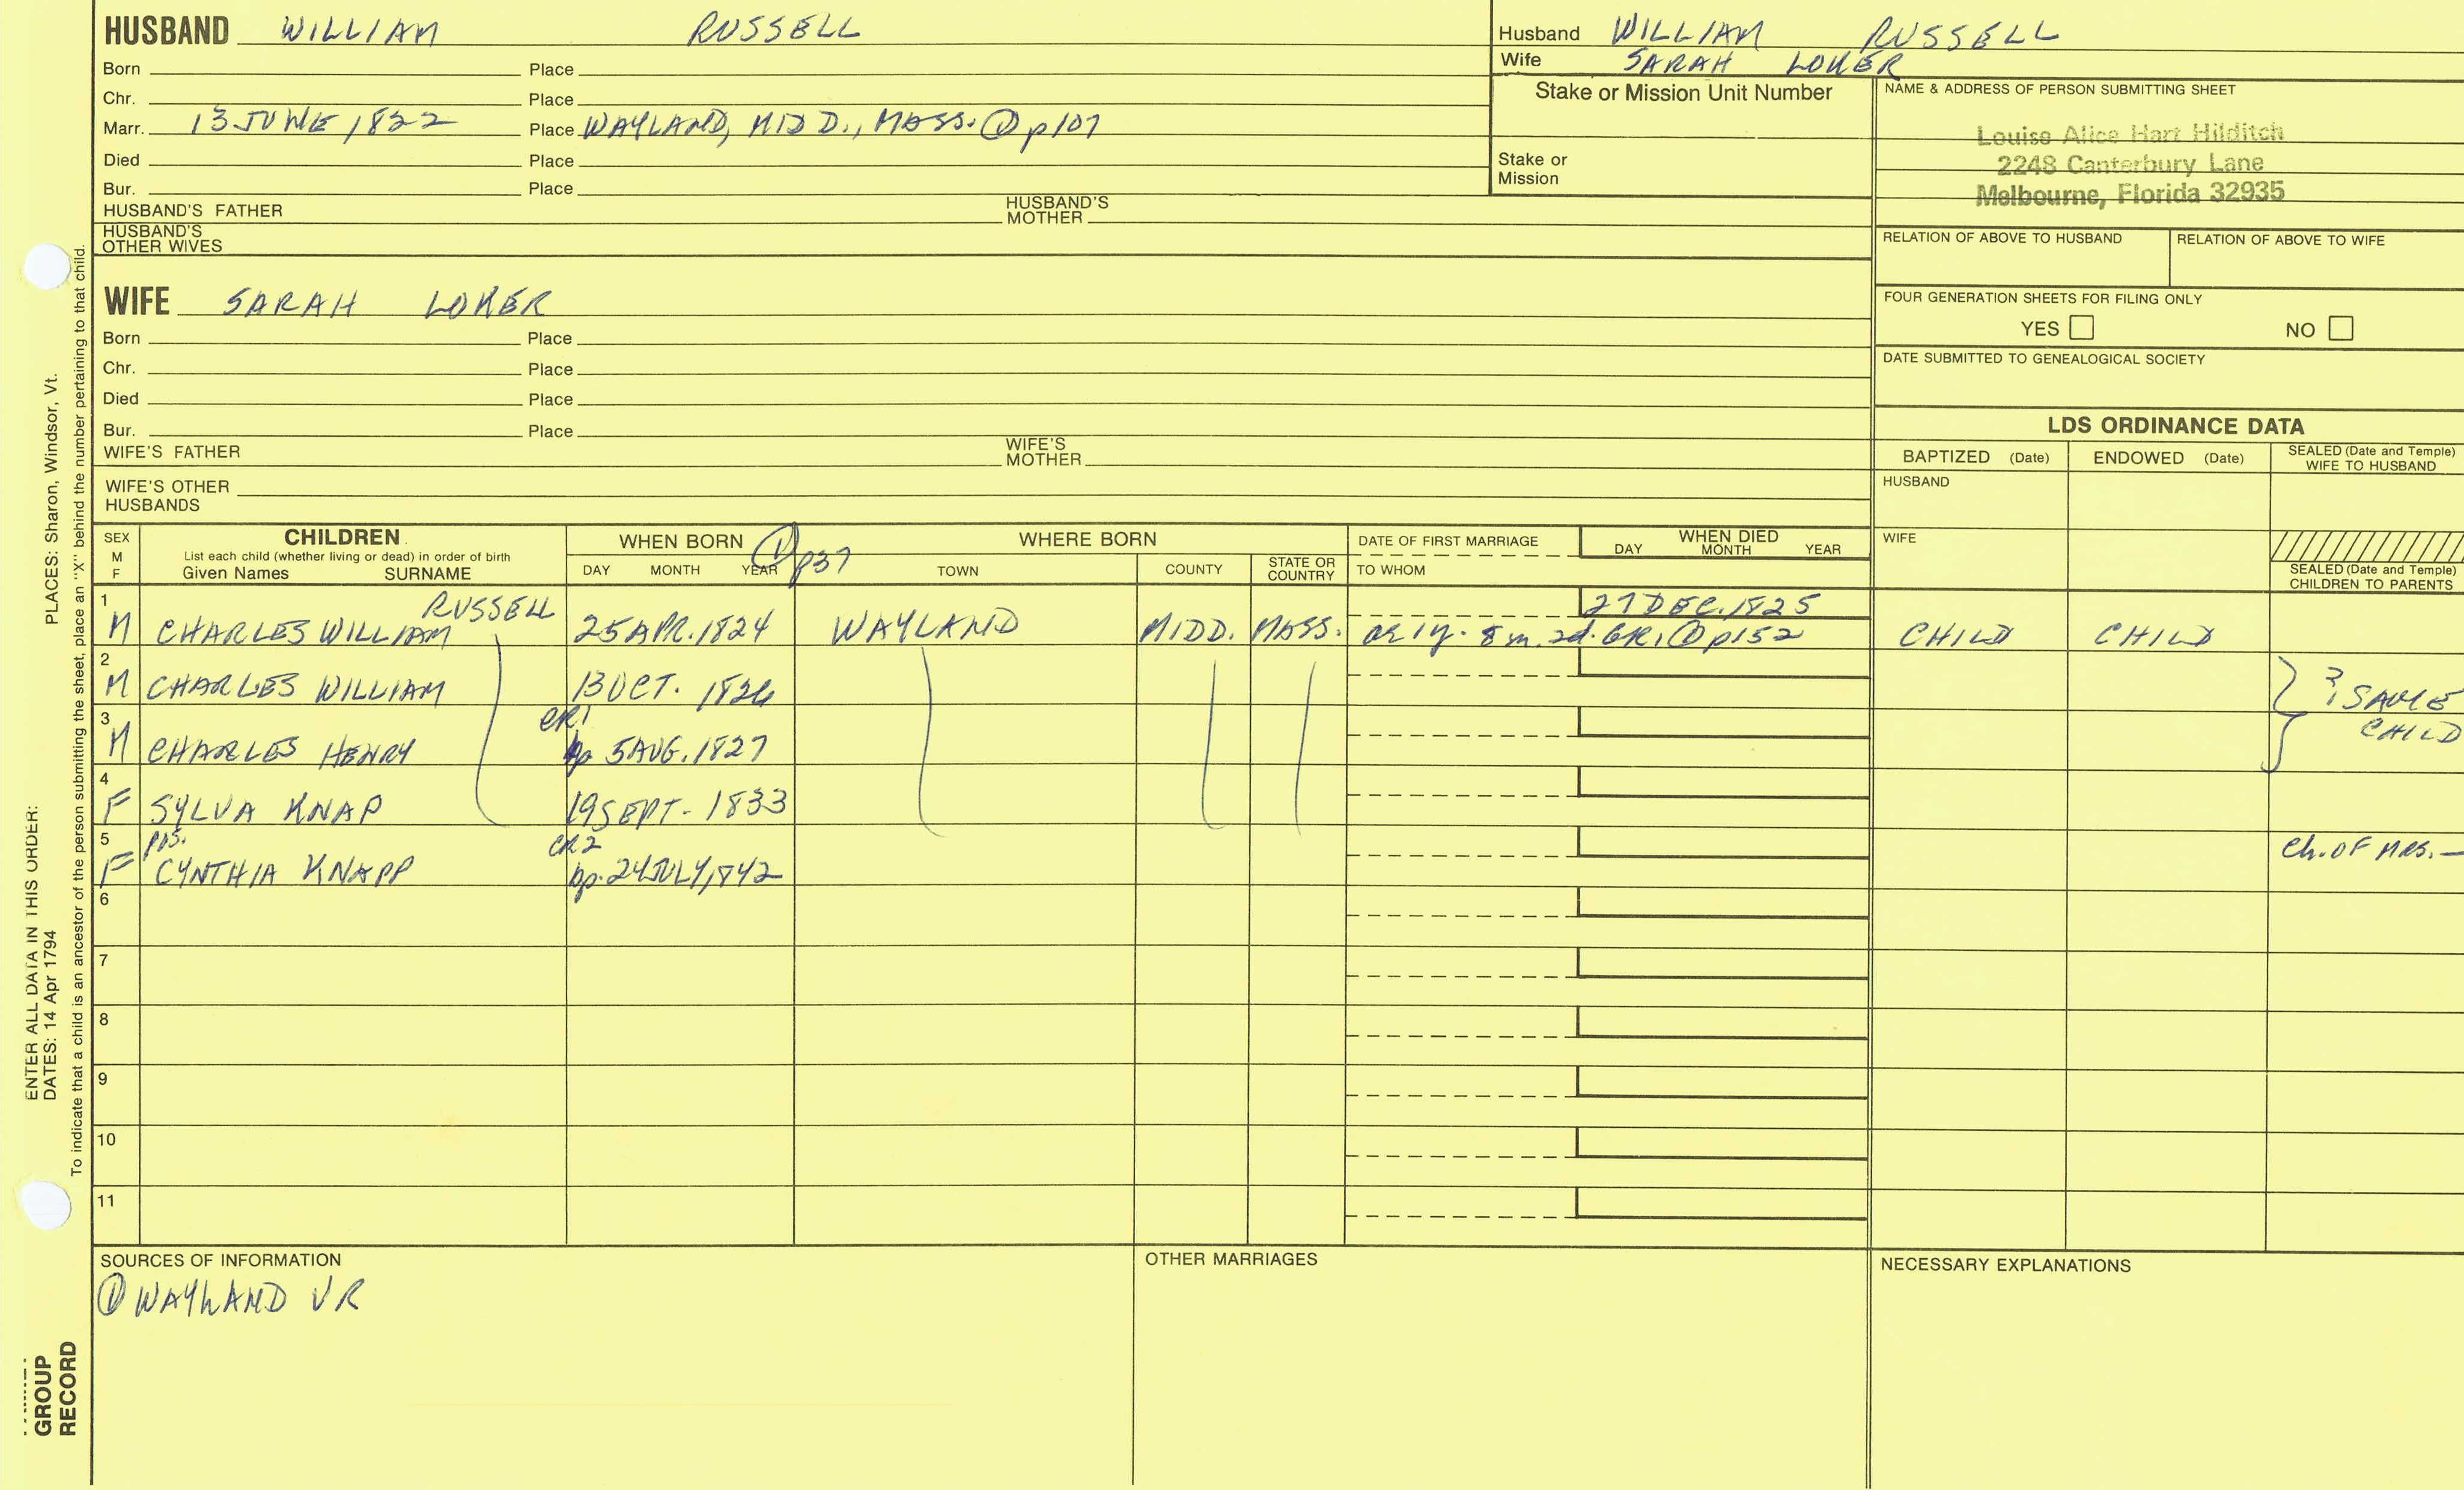 HUSBAND WILLIAM RUSSELL
Born Place
Chr. Place
Marr. 13 JUNE 1822 Place WAYLAND, MIDD., MASS. ① p107
Died Place
Bur. Place
HUSBAND'S FATHER HUSBAND'S MOTHER
HUSBAND'S OTHER WIVES
Husband WILLIAM RUSSELL
Wife SARAH LOKER
Stake or Mission Unit Number
Stake or Mission
NAME & ADDRESS OF PERSON SUBMITTING SHEET
Louise Alice Hart Hilditch
2248 Canterbury Lane
Melbourne, Florida 32935
RELATION OF ABOVE TO HUSBAND RELATION OF ABOVE TO WIFE
FOUR GENERATION SHEETS FOR FILING ONLY
YES NO
DATE SUBMITTED TO GENEALOGICAL SOCIETY
WIFE SARAH LOKER
Born Place
Chr. Place
Died Place
Bur. Place
WIFE'S FATHER WIFE'S MOTHER
WIFE'S OTHER HUSBANDS
LDS ORDINANCE DATA
BAPTIZED (Date) ENDOWED (Date) SEALED (Date and Temple) WIFE TO HUSBAND
HUSBAND
WIFE
SEALED (Date and Temple) CHILDREN TO PARENTS
SEX M F
CHILDREN
List each child (whether living or dead) in order of birth
Given Names SURNAME
WHEN BORN ① p37
DAY MONTH YEAR
WHERE BORN
TOWN COUNTY STATE OR COUNTRY
DATE OF FIRST MARRIAGE
TO WHOM
WHEN DIED
DAY MONTH YEAR
1 M CHARLES WILLIAM RUSSELL 25 APR. 1824 WAYLAND MIDD. MASS. 27 DEC. 1825
ae 1y. 8 m. 2d. GR1 ① p152 CHILD CHILD
2 M CHARLES WILLIAM 13 OCT. 1826
3 M CHARLES HENRY CR1 bp 5 AUG. 1827
? SAME CHILD
4 F SYLVA KNAP 19 SEPT. 1833
5 F pos. CYNTHIA KNAPP CR2 bp. 24 JULY, 1842 Ch. OF MRS. —
6
7
8
9
10
11
SOURCES OF INFORMATION
① WAYLAND VR
OTHER MARRIAGES
NECESSARY EXPLANATIONS
PLACES: Sharon, Windsor, Vt.
To indicate that a child is an ancestor of the person submitting the sheet, place an "X" behind the number pertaining to that child.
ENTER ALL DATA IN THIS ORDER:
DATES: 14 Apr 1794
GROUP
RECORD